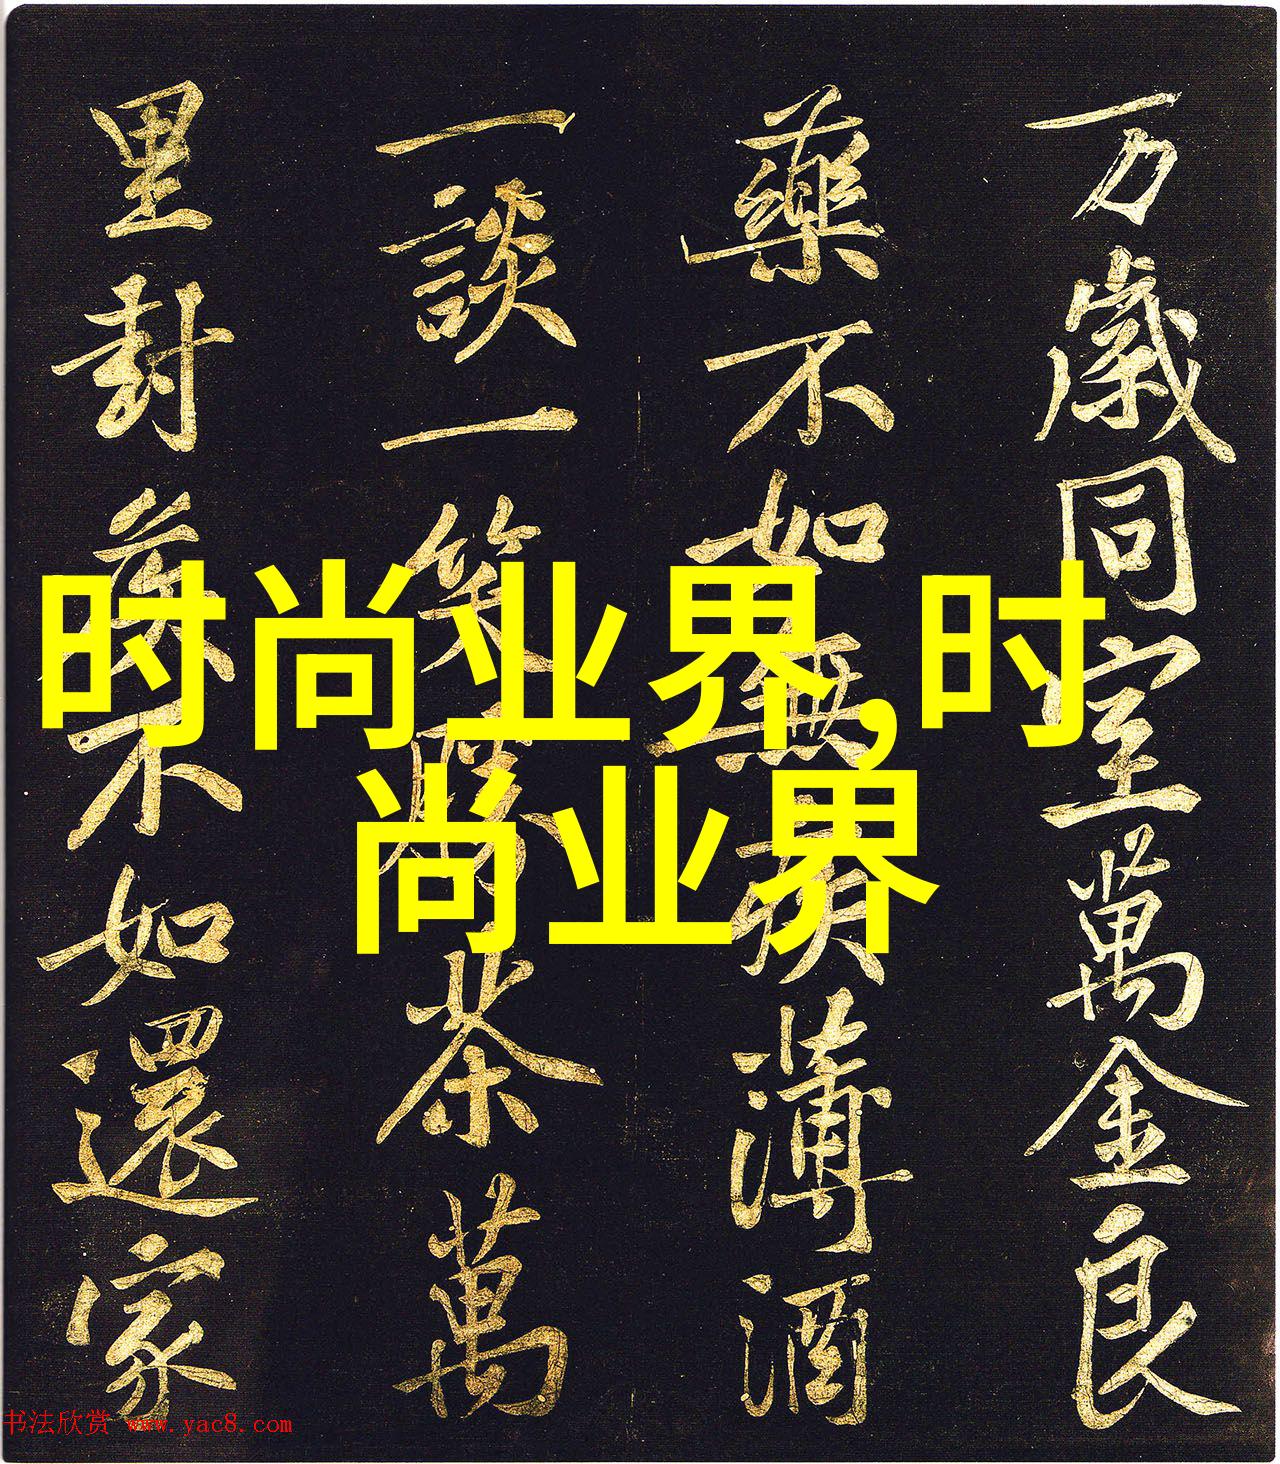 万歲同室萬金良
藥不如無疾薄酒
一談一笑勝茶萬
里封侯不如還家
时尚业界,时
尚业界
书法欣赏 www.yac8.com